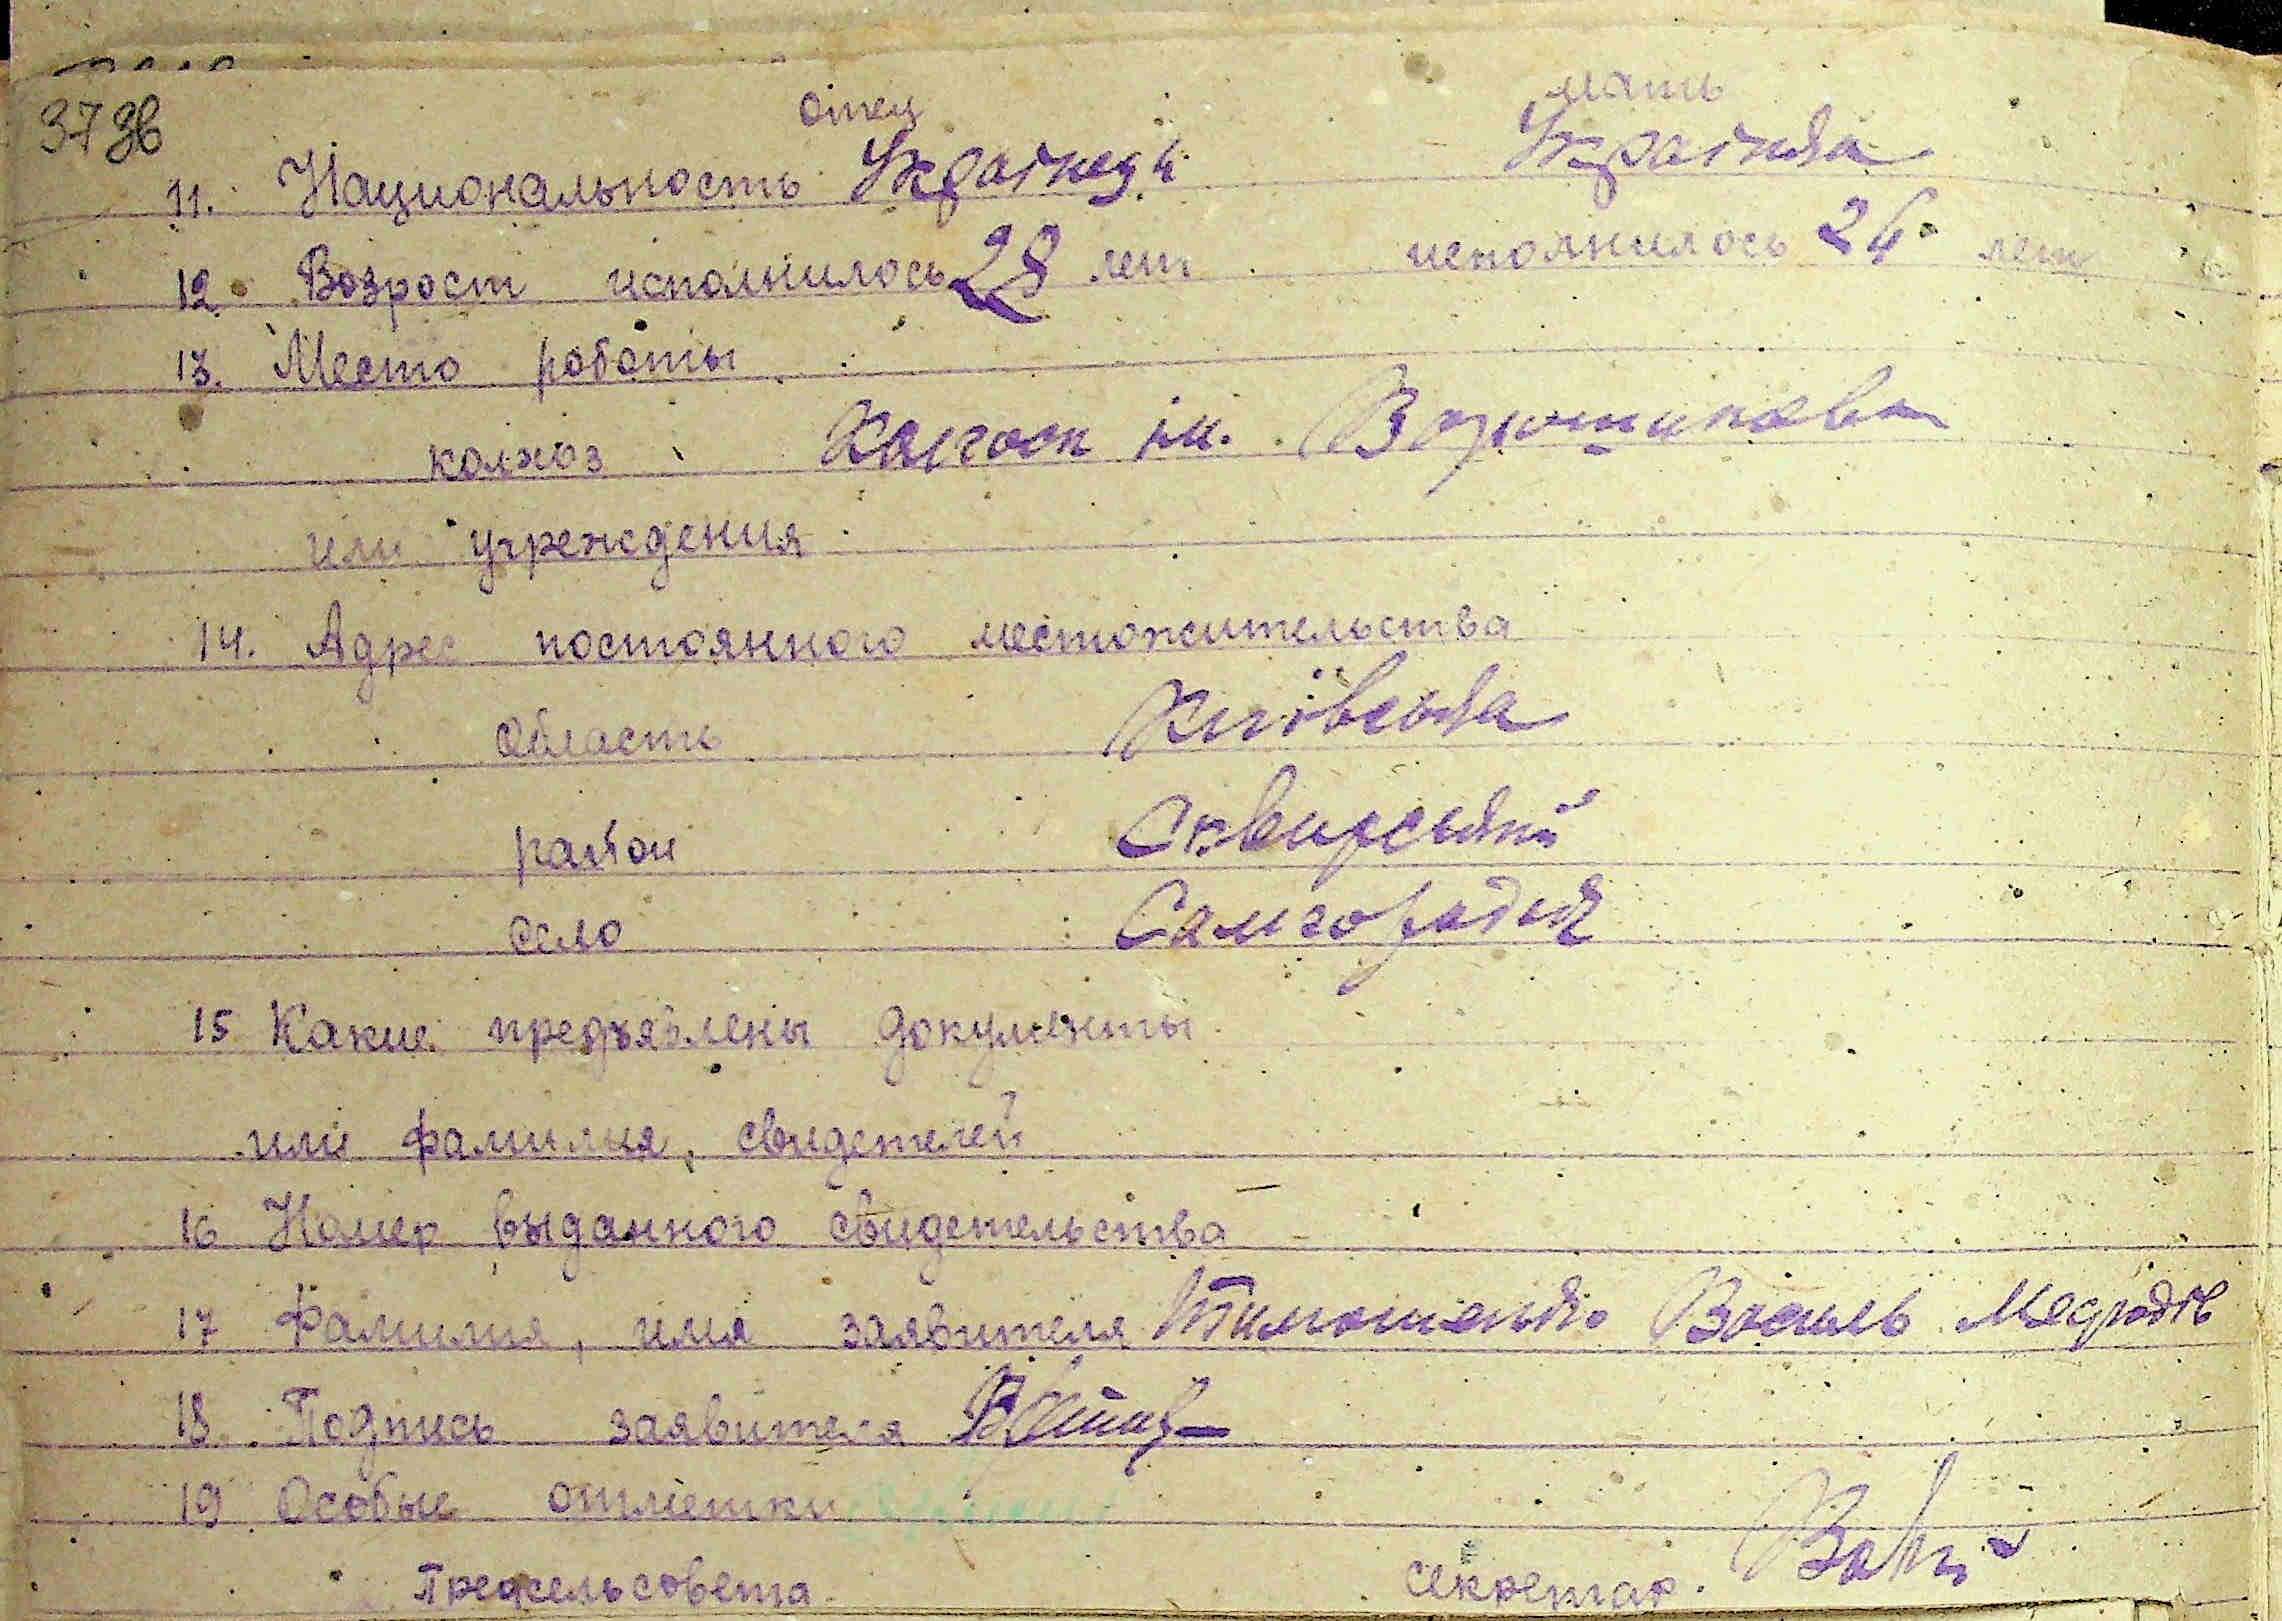 37 зв
отец мать
11. Национальность Українець Українка
12. Возрост исполнилось 28 лет исполнилось 24 лет
13. Место работы
колхоз Колгосп ім. Ворошилова
или учреждения
14. Адрес постоянного местожительства
область Київська
район Сквирський
село Самгородок
15 Какие предъявлены документы
или фамилия, свидетелей
16 Номер выданного свидетельства
17 Фамилия, имя заявителя Тимошенко Василь
18. Подпись заявителя
19 Особые отметки
Предсельсовета секретар.